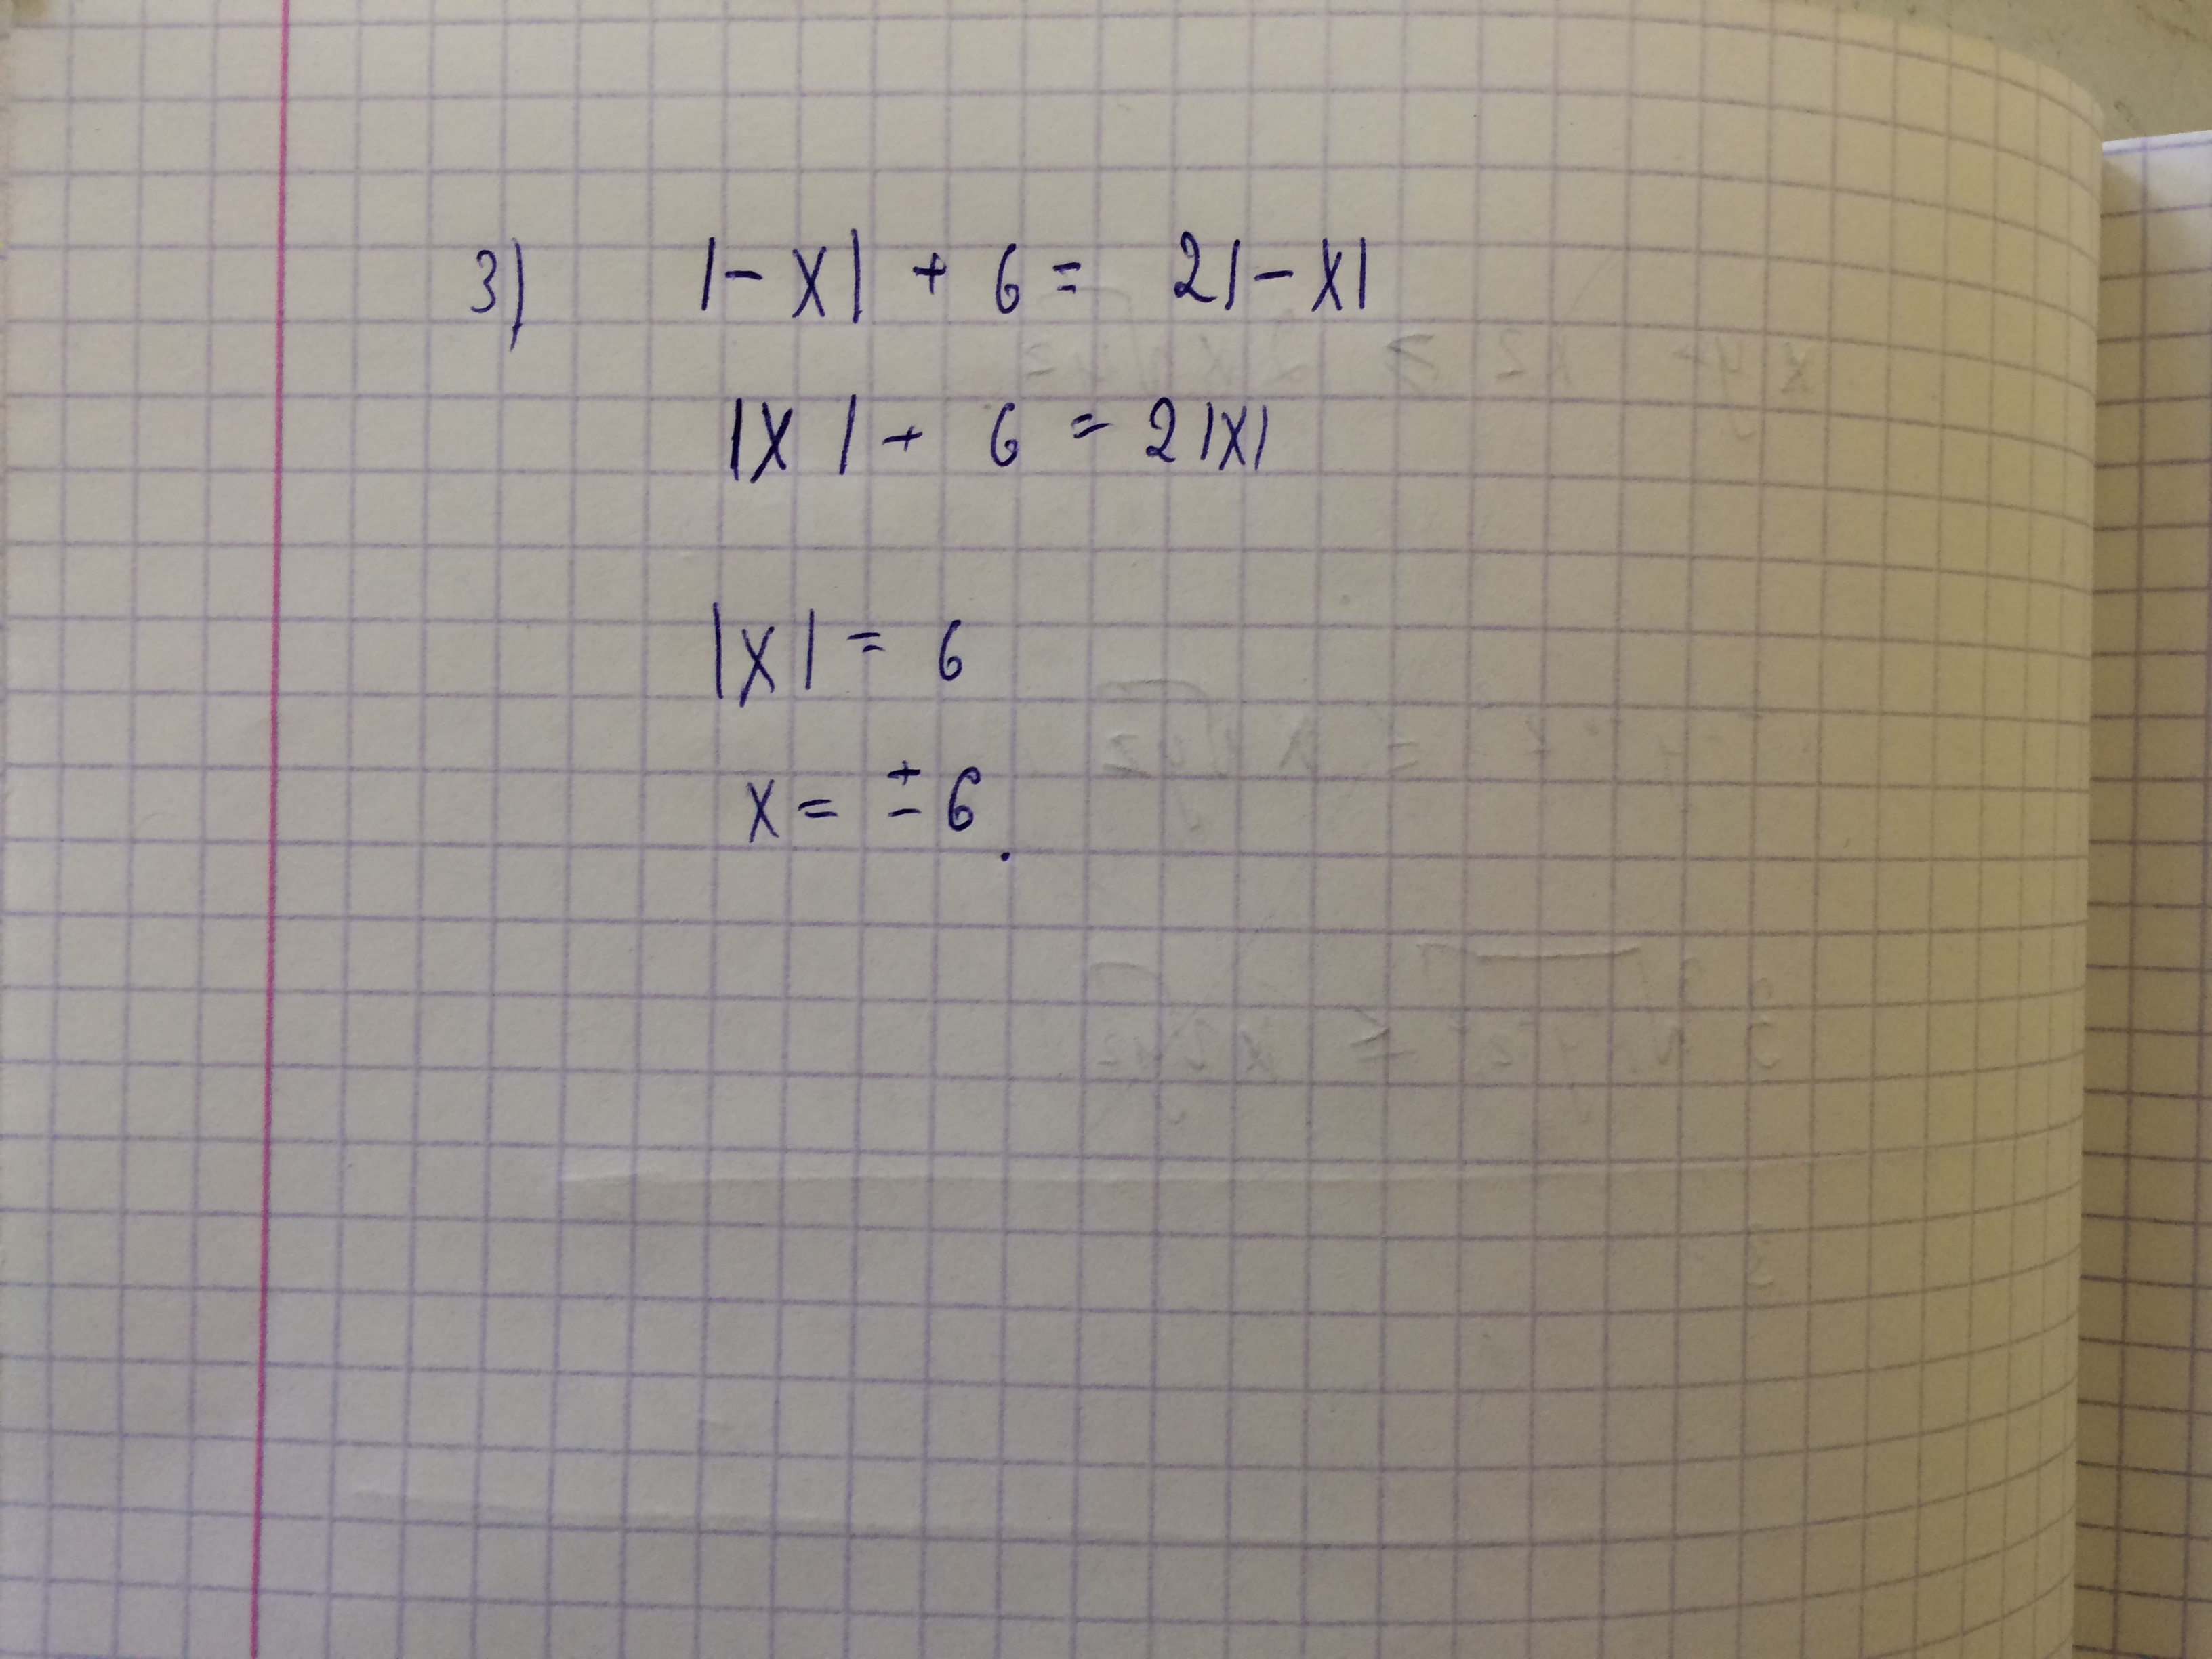 3) |-x| + 6 = 2|-x|
|x| + 6 = 2|x|
|x| = 6
x = ± 6.